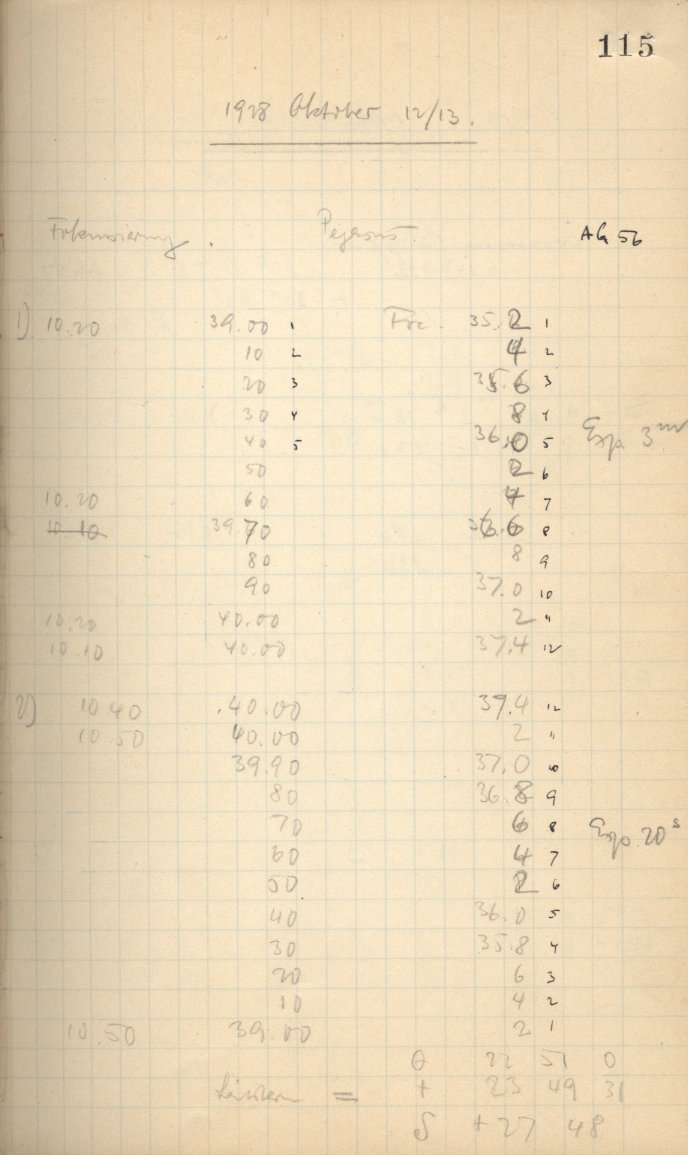 115
1928 Oktober 12/13.
Fokussierung. Pegasus. AG 56
1) 10.20 39.00 1 Foc. 35.2 1
10 2 4 2
20 3 35.6 3
30 4 8 4
40 5 36.0 5 Exp. 3m
50 2 6
10.20 60 4 7
10.10 39.70 36.6 8
80 8 9
90 37.0 10
10.20 40.00 2 11
10.10 40.00 37.4 12
2) 10 40 .40.00 37.4 12
10 50 40.00 2 11
39.90 37.0 10
80 36.8 9
70 6 8 Exp. 20s
60 4 7
50 2 6
40 36.0 5
30 35.8 4
20 6 3
10 4 2
10.50 39.00 2 1
θ 22 51 0
= t 23 49 31
δ +27 48